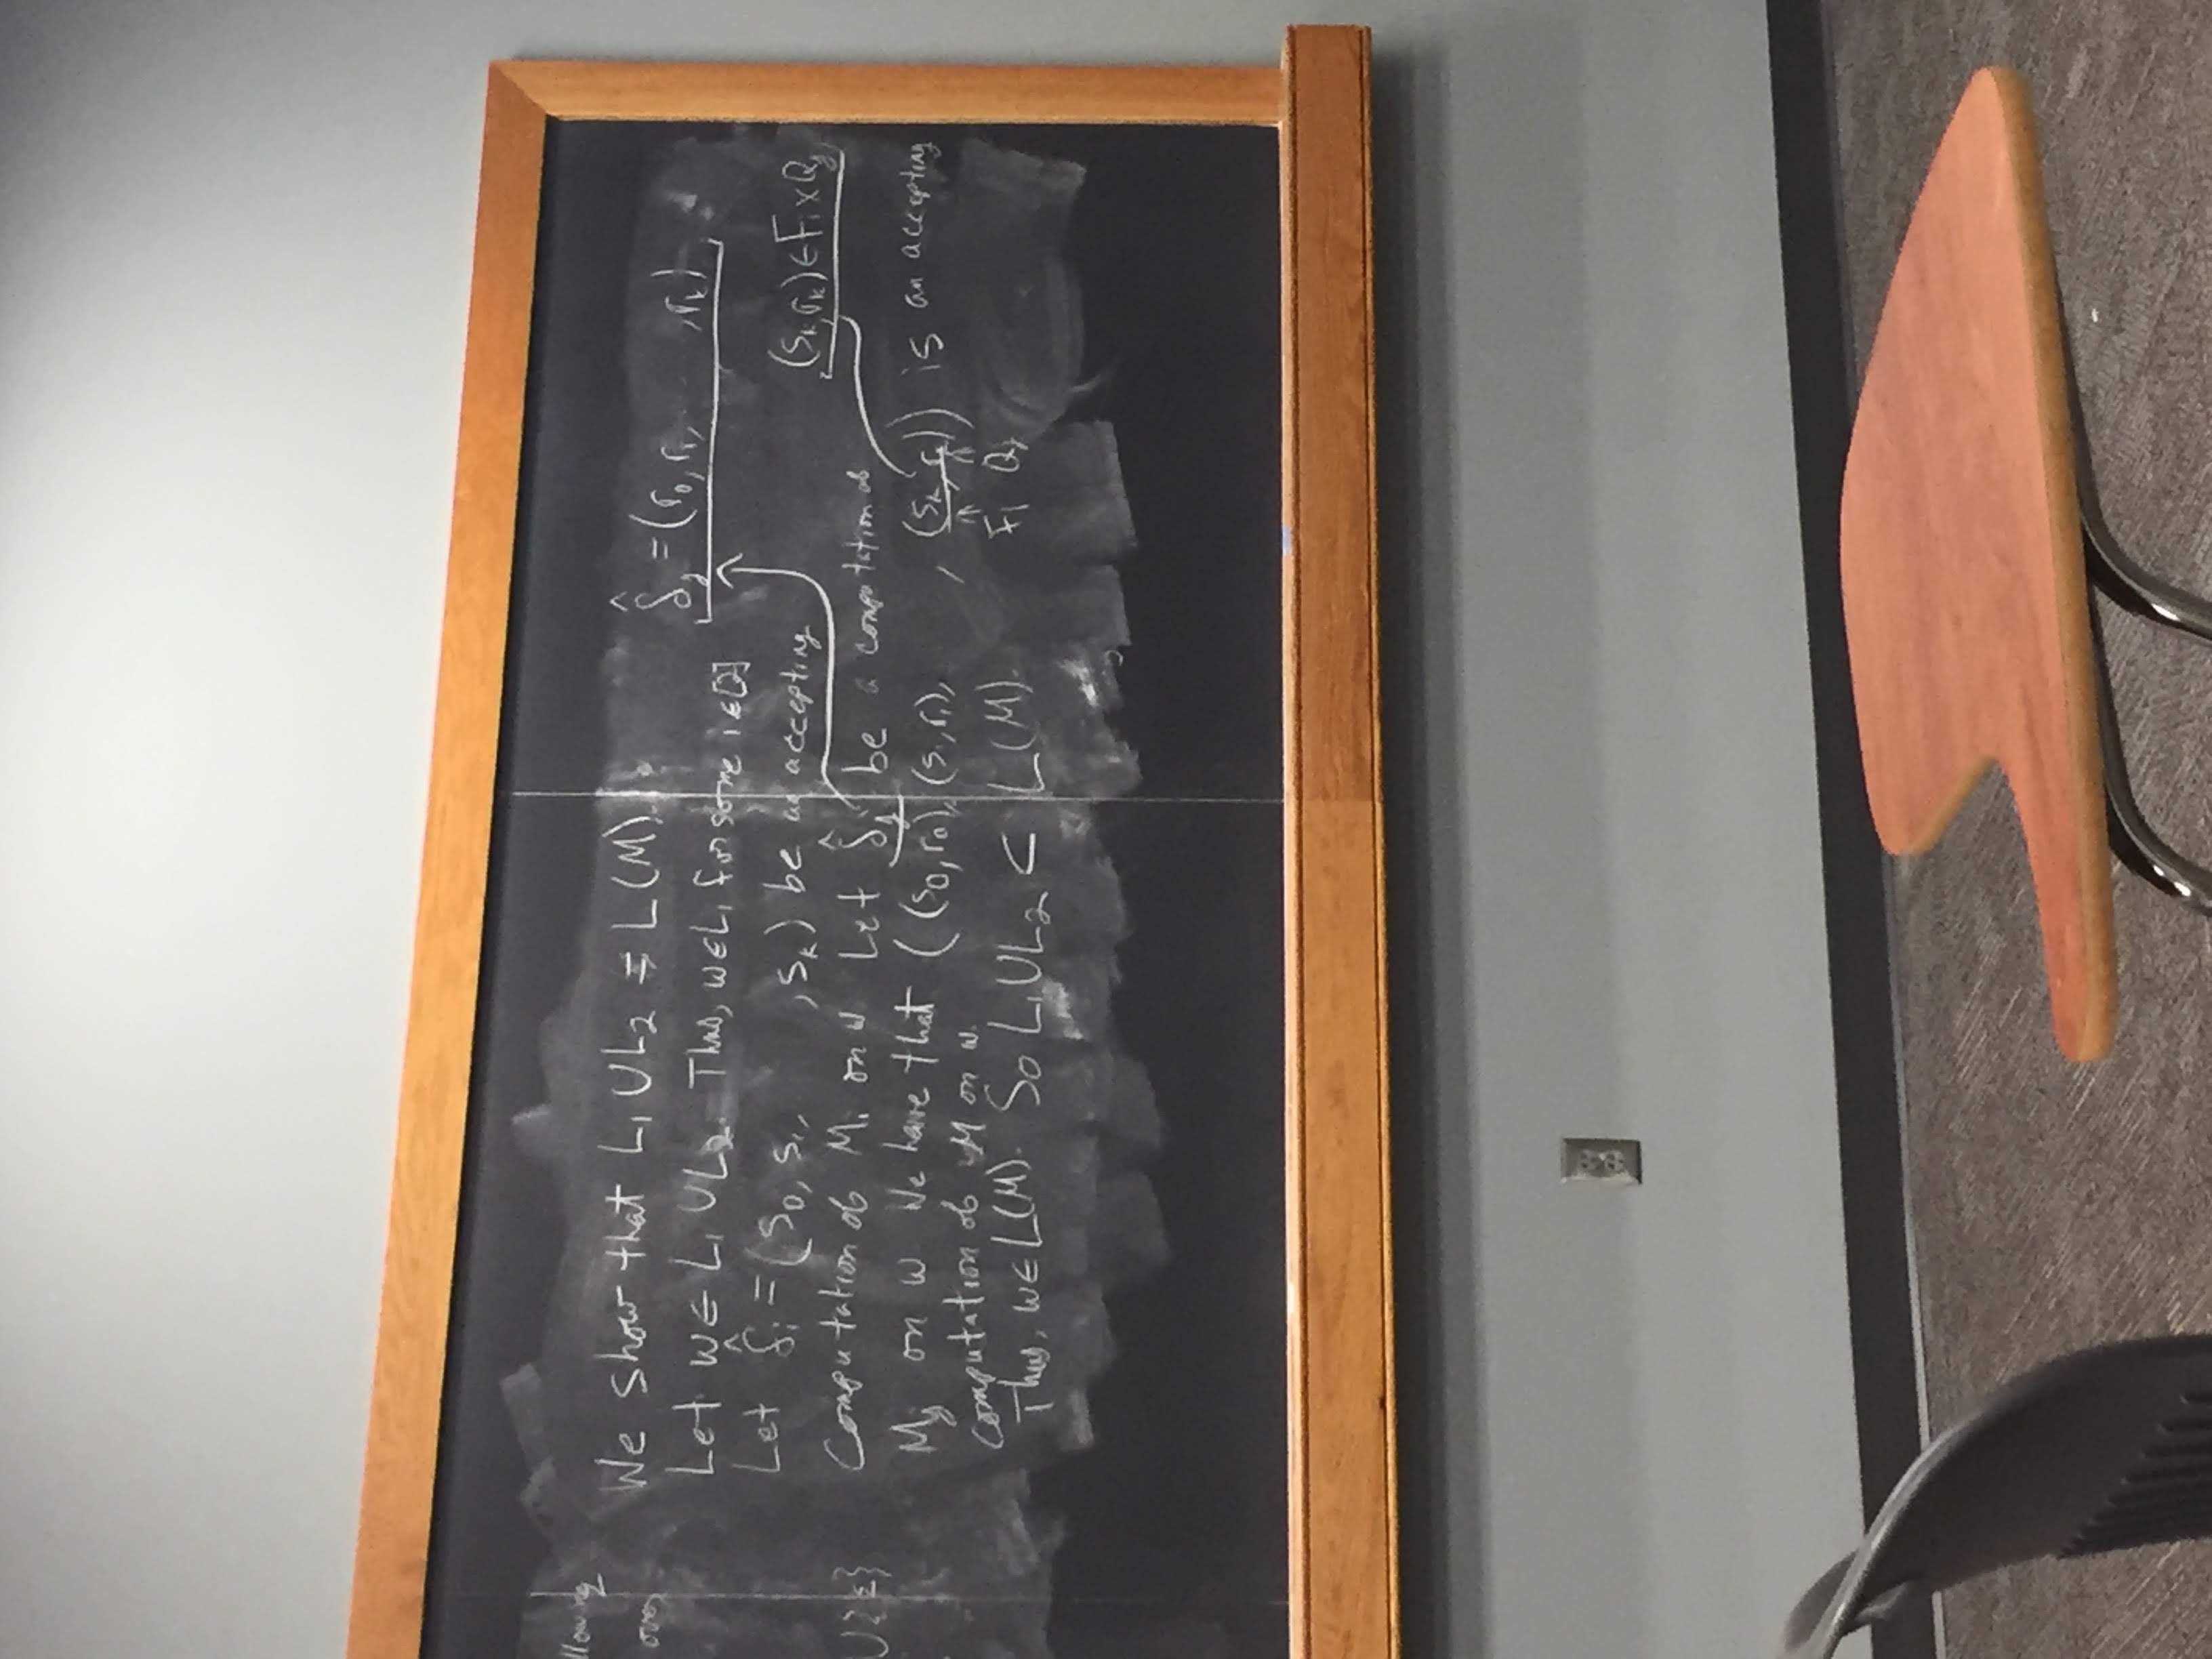 llowing
over
We show that L₁ ∪ L₂ = L(M).
Let w ∈ L₁ ∪ L₂. Thus, w ∈ Lᵢ for some i ∈ [2]
Let δ̂ᵢ = (s₀, s₁, , sₖ) be an accepting
Computation of Mᵢ on w. Let δ̂ⱼ be a computation of
Mⱼ on w. We have that ((s₀, r₀), (s₁, r₁), , (sₖ, rₖ)) is an accepting
computation of M on w.
Thus, w ∈ L(M). So L₁ ∪ L₂ ⊂ L(M).
δ̂ⱼ = (r₀, r₁, , rₖ)
(sₖ, rₖ) ∈ Fᵢ × Qⱼ
Fᵢ Qⱼ